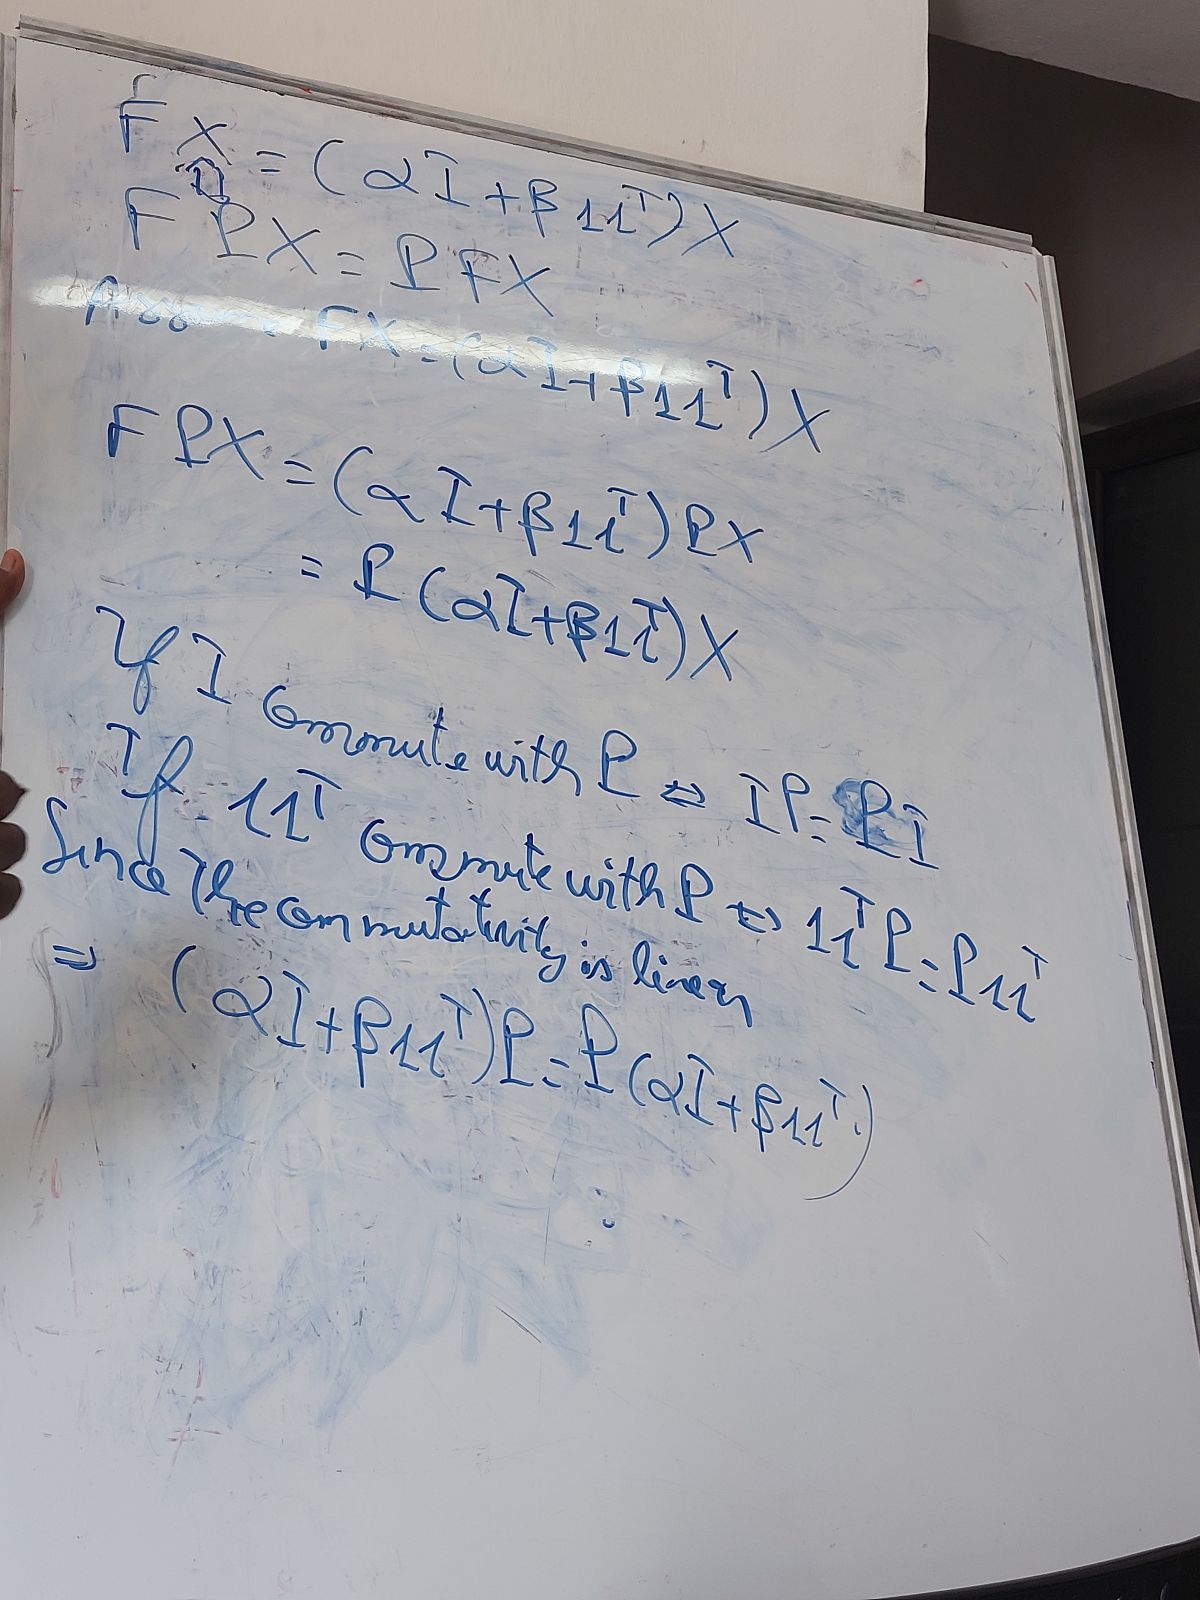 FX = (αI + β11ᵀ)X
⇕
FPX = PFX
Assume FX = (αI + β11ᵀ)X
FPX = (αI + β11ᵀ)PX
= P(αI + β11ᵀ)X
If I commute with P ⇔ IP = PI
If 11ᵀ commute with P ⇔ 11ᵀP = P11ᵀ
Since The commutativity is linear
⇒ (αI + β11ᵀ)P = P(αI + β11ᵀ)